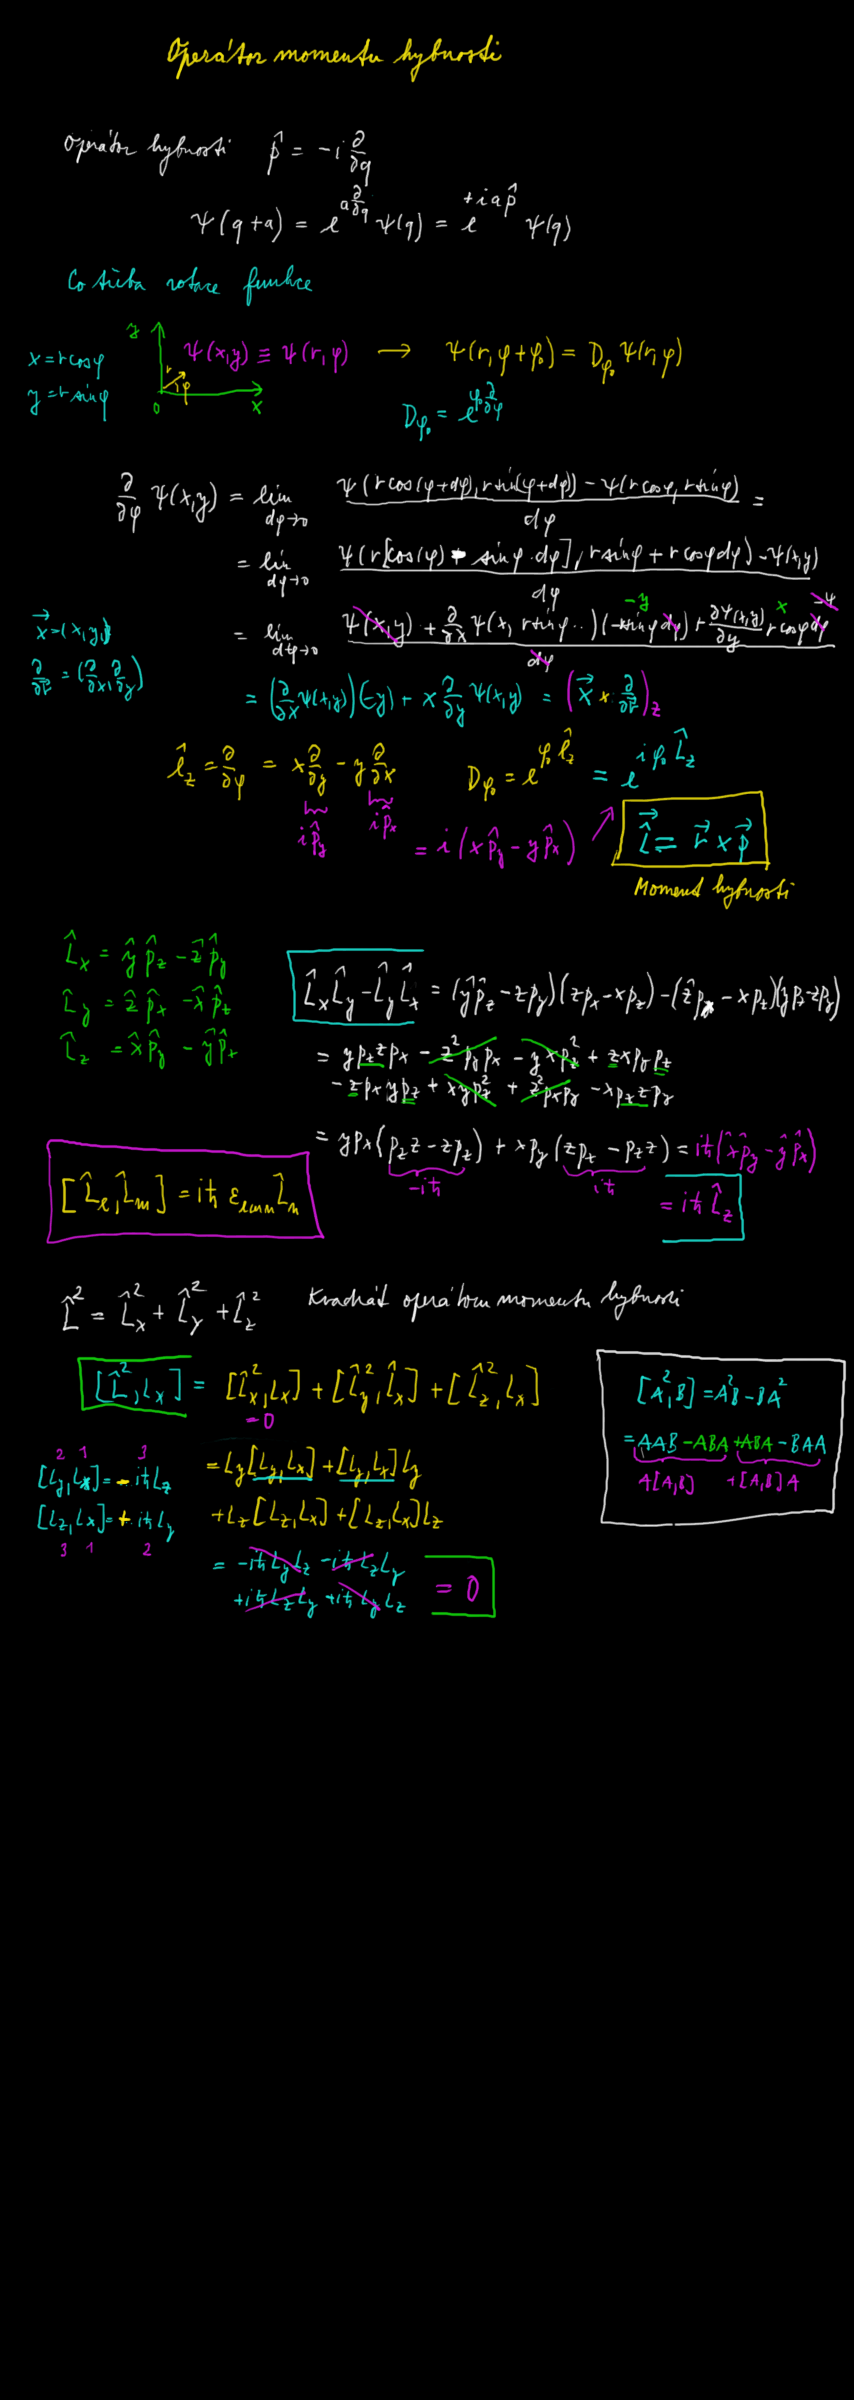 Operátor momentu hybnosti
Operátor hybnosti p̂ = -i ∂/∂q
Ψ(q+a) = e^{a ∂/∂q} Ψ(q) = e^{+i a p̂} Ψ(q)
Co třeba rotace funkce
x = r cosφ
y = r sinφ
y
r
φ
0
x
Ψ(x,y) ≡ Ψ(r,φ) → Ψ(r,φ+φ₀) = D_{φ₀} Ψ(r,φ)
D_{φ₀} = e^{φ₀ ∂/∂φ}
∂/∂φ Ψ(x,y) = lim_{dφ→0} (Ψ(r cos(φ+dφ), r sin(φ+dφ)) - Ψ(r cosφ, r sinφ))/dφ =
= lim_{dφ→0} (Ψ(r[cos(φ) - sinφ·dφ], r sinφ + r cosφ dφ) - Ψ(x,y))/dφ
x⃗ = (x,y)
∂/∂r⃗ = (∂/∂x, ∂/∂y)
= lim_{dφ→0} (Ψ(x,y) + ∂/∂x Ψ(x, r sinφ..)(-r sinφ dφ) + ∂Ψ(x,y)/∂y r cosφ dφ -Ψ)/dφ
-y
x
= (∂/∂x Ψ(x,y))(-y) + x ∂/∂y Ψ(x,y) = (x⃗ × ∂/∂r⃗)_z
l̂_z = ∂/∂φ = x ∂/∂y - y ∂/∂x
D_{φ₀} = e^{φ₀ l̂_z} = e^{i φ₀ L̂_z}
i p̂_y
i p̂_x
= i (x p̂_y - y p̂_x)
L̂⃗ = r⃗ × p⃗
Moment hybnosti
L̂_x = ŷ p̂_z - ẑ p̂_y
L̂_y = ẑ p̂_x - x̂ p̂_z
L̂_z = x̂ p̂_y - ŷ p̂_x
L̂_x L̂_y - L̂_y L̂_x = (ŷ p̂_z - z p_y)(z p_x - x p_z) - (ẑ p_x - x p_z)(y p_z - z p_y)
= y p_z z p_x - z² p_y p_x - y x p_z² + z x p_y p_z
- z p_x y p_z + x y p_z² + z² p_x p_y - x p_z z p_y
= y p_x (p_z z - z p_z) + x p_y (z p_z - p_z z) = iħ (x̂ p̂_y - ŷ p̂_x)
-iħ
iħ
= iħ L̂_z
[L̂_l, L̂_m] = iħ ε_{lmn} L̂_n
L̂² = L̂_x² + L̂_y² + L̂_z²
Kvadrát operátoru momentu hybnosti
[L̂², L_x] = [L̂_x², L_x] + [L̂_y², L̂_x] + [L̂_z², L_x]
= 0
2 1 3
[L_y, L_x] = - iħ L_z
[L_z, L_x] = + iħ L_y
3 1 2
= L_y [L_y, L_x] + [L_y, L_x] L_y
+ L_z [L_z, L_x] + [L_z, L_x] L_z
= -iħ L_y L_z - iħ L_z L_y
+ iħ L_z L_y + iħ L_y L_z
= 0
[A², B] = A²B - BA²
= AAB - ABA + ABA - BAA
A[A,B] + [A,B]A